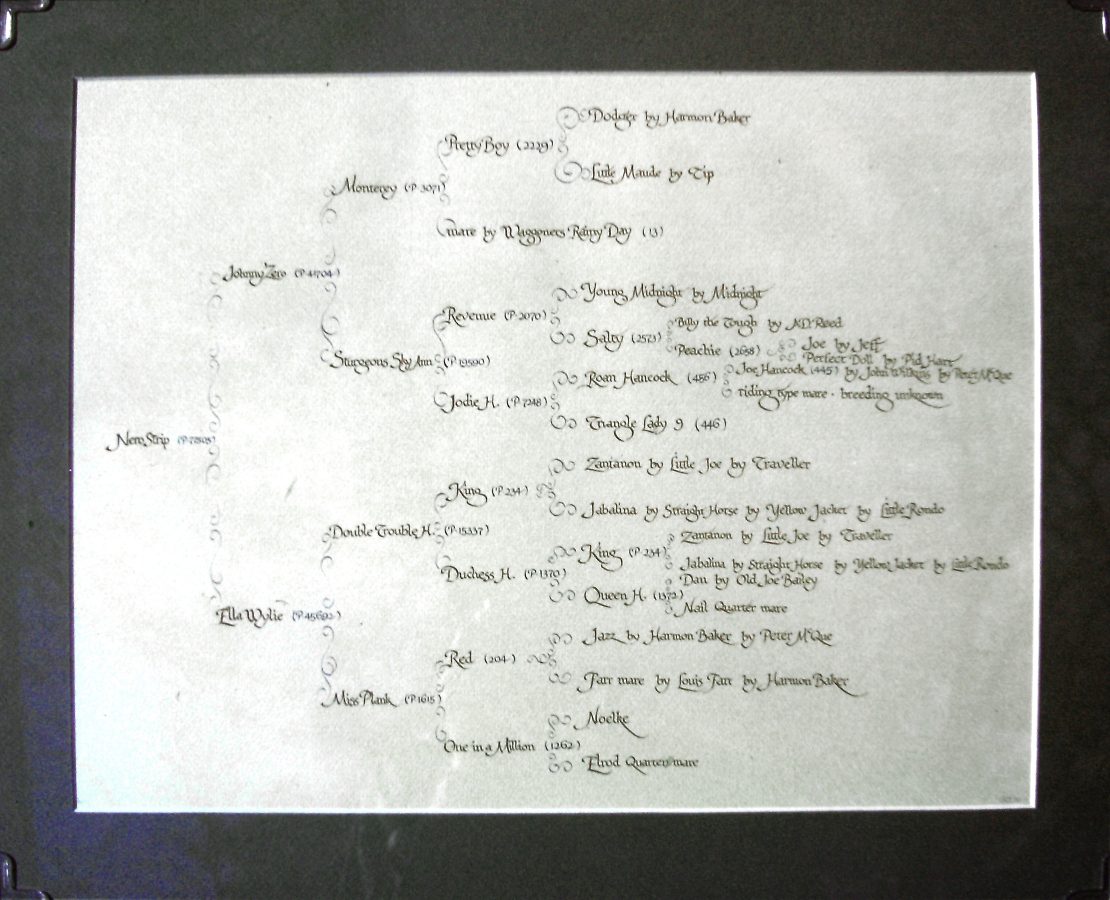 Dodger by Harmon Baker
Pretty Boy (2229)
Little Maude by Tip
Monterey (P-3071)
mare by Waggoners Rainy Day (13)
Johnny Zero (P-41704)
Young Midnight by Midnight
Revenue (P-2070)
Billy the Tough by N.D. Reed
Salty (2573)
Joe by Jeff
Peachie (2658)
Perfect Doll by Phil Harr
Sturogous Sky Ann (P-19590)
Joe Hancock (445) by John Wilkins by Peter McQue
Roan Hancock (456)
riding type mare - breeding unknown
Jodie H. (P-7248)
Triangle Lady 9 (446)
Nero Strip
Zantanon by Little Joe by Traveller
King (P-234)
Jabalina by Straight Horse by Yellow Jacket by Little Rondo
Double Trouble H. (P-15337)
Zantanon by Little Joe by Traveller
King (P-234)
Jabalina by Straight Horse by Yellow Jacket by Little Rondo
Duchess H. (P-1370)
Dan by Old Joe Bailey
Queen H. (1372)
Nail Quarter mare
Ella Wylie
Jazz by Harmon Baker by Peter McQue
Red (204)
Farr mare by Louis Farr by Harmon Baker
Miss Plank (P-1615)
Noelke
One in a Million (1262)
Elrod Quarter mare